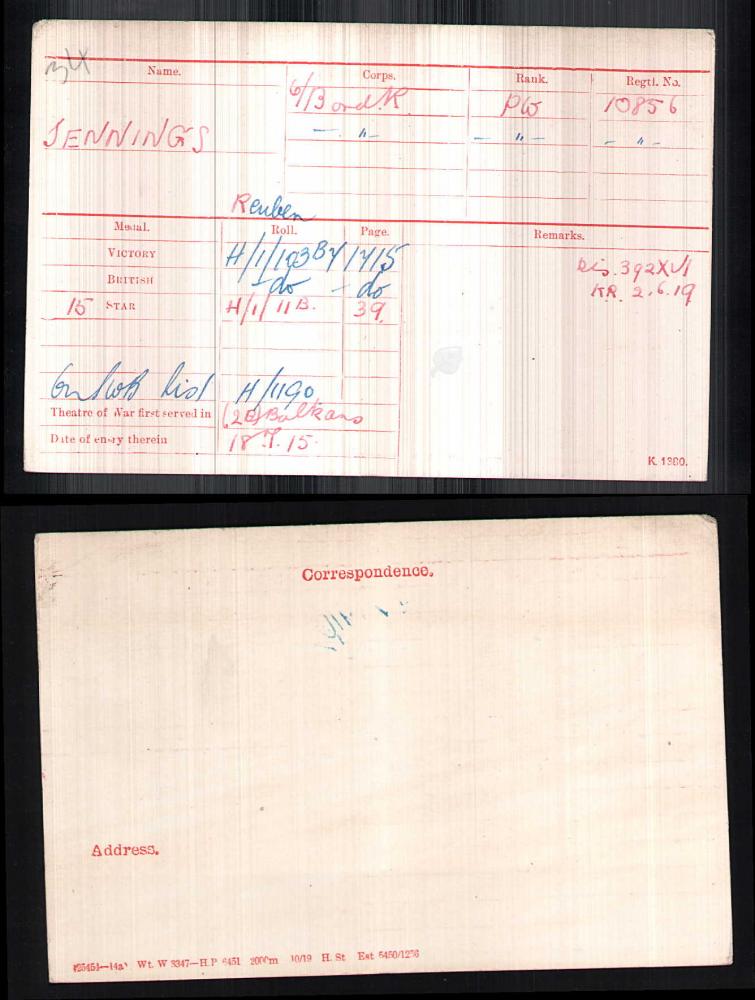 Name. Corps. Rank. Regtl. No.
6/Bord.R. Pte 10856
JENNINGS — " — — " — — " —
Reuben
Medal. Roll. Page. Remarks.
VICTORY H/1/103B4 1715 Dis. 392XVI
BRITISH — do — do K.R. 2.6.19
15 STAR H/1/11B. 39
H/1190
Theatre of War first served in (2B) Balkans
Date of entry therein 18.7.15.
K. 1380.
Correspondence.
Address.
Wt. W 3347—H.P 6451 2000m 10/19 H. St Est 5450/1256